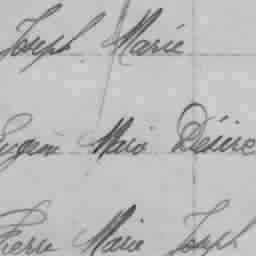 Joseph Marie
Eugène Marie Désiré
Pierre Marie Joseph